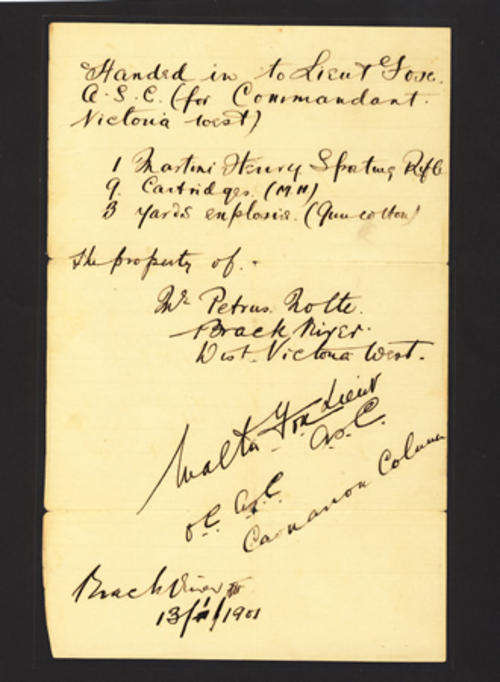 Handed in to Lieut Fox.
A.S.C. (for Commandant.
Victoria West)
1 Martini Henry Sporting Rifle
9. Cartridges. (M H)
3 yards explosive. (Gun cotton)
the property of.
Mr Petrus Nolte.
Brack River.
Dist. Victoria West.
Walter Fox Lieut
A.S.C.
O.C. A.S.C.
Carnarvon Column
Brack River
1901